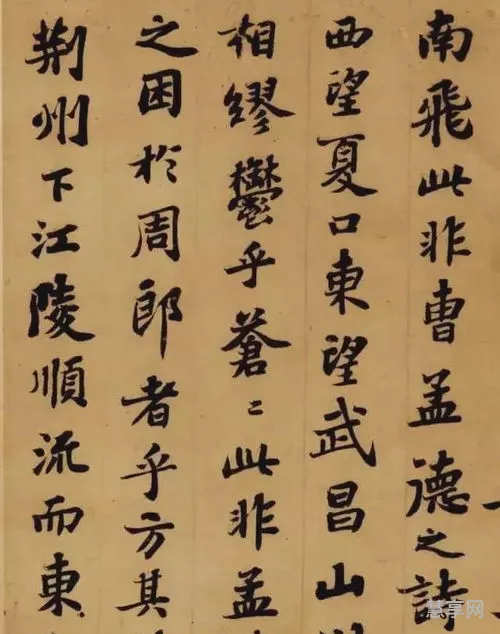 南飛此非曹孟德之詩
西望夏口東望武昌山
相繆鬱乎蒼〻此非孟
之困於周郎者乎方其
荆州下江陵順流而東
慧享网